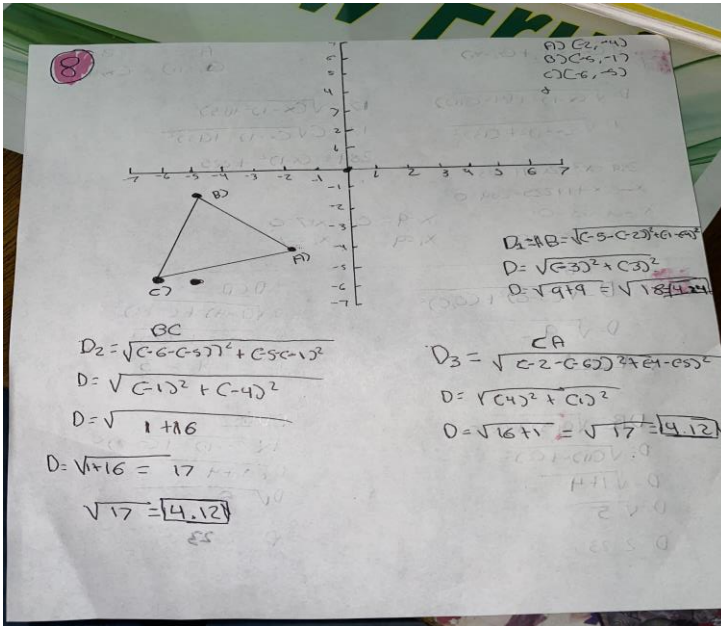 8
A) (-2, -4)
B) (-5, -1)
C) (-6, -5)
7
6
5
4
3
2
1
-7 -6 -5 -4 -3 -2 -1 1 2 3 4 5 6 7
-1
-2
-3
-4
-5
-6
-7
B)
A)
C)
D₁=AB=√(-5-(-2))²+(-1-(-4))²
D=√(-3)²+(3)²
D=√9+9=√18=4.24
BC
D₂=√(-6-(-5))²+(-5(-1)²
D=√(-1)²+(-4)²
D=√ 1+16
D=√1+16 = 17
√17=4.12
CA
D₃=√(-2-(-6))²+(-4-(-5)²
D=√(4)²+(1)²
D=√16+1=√17=4.12